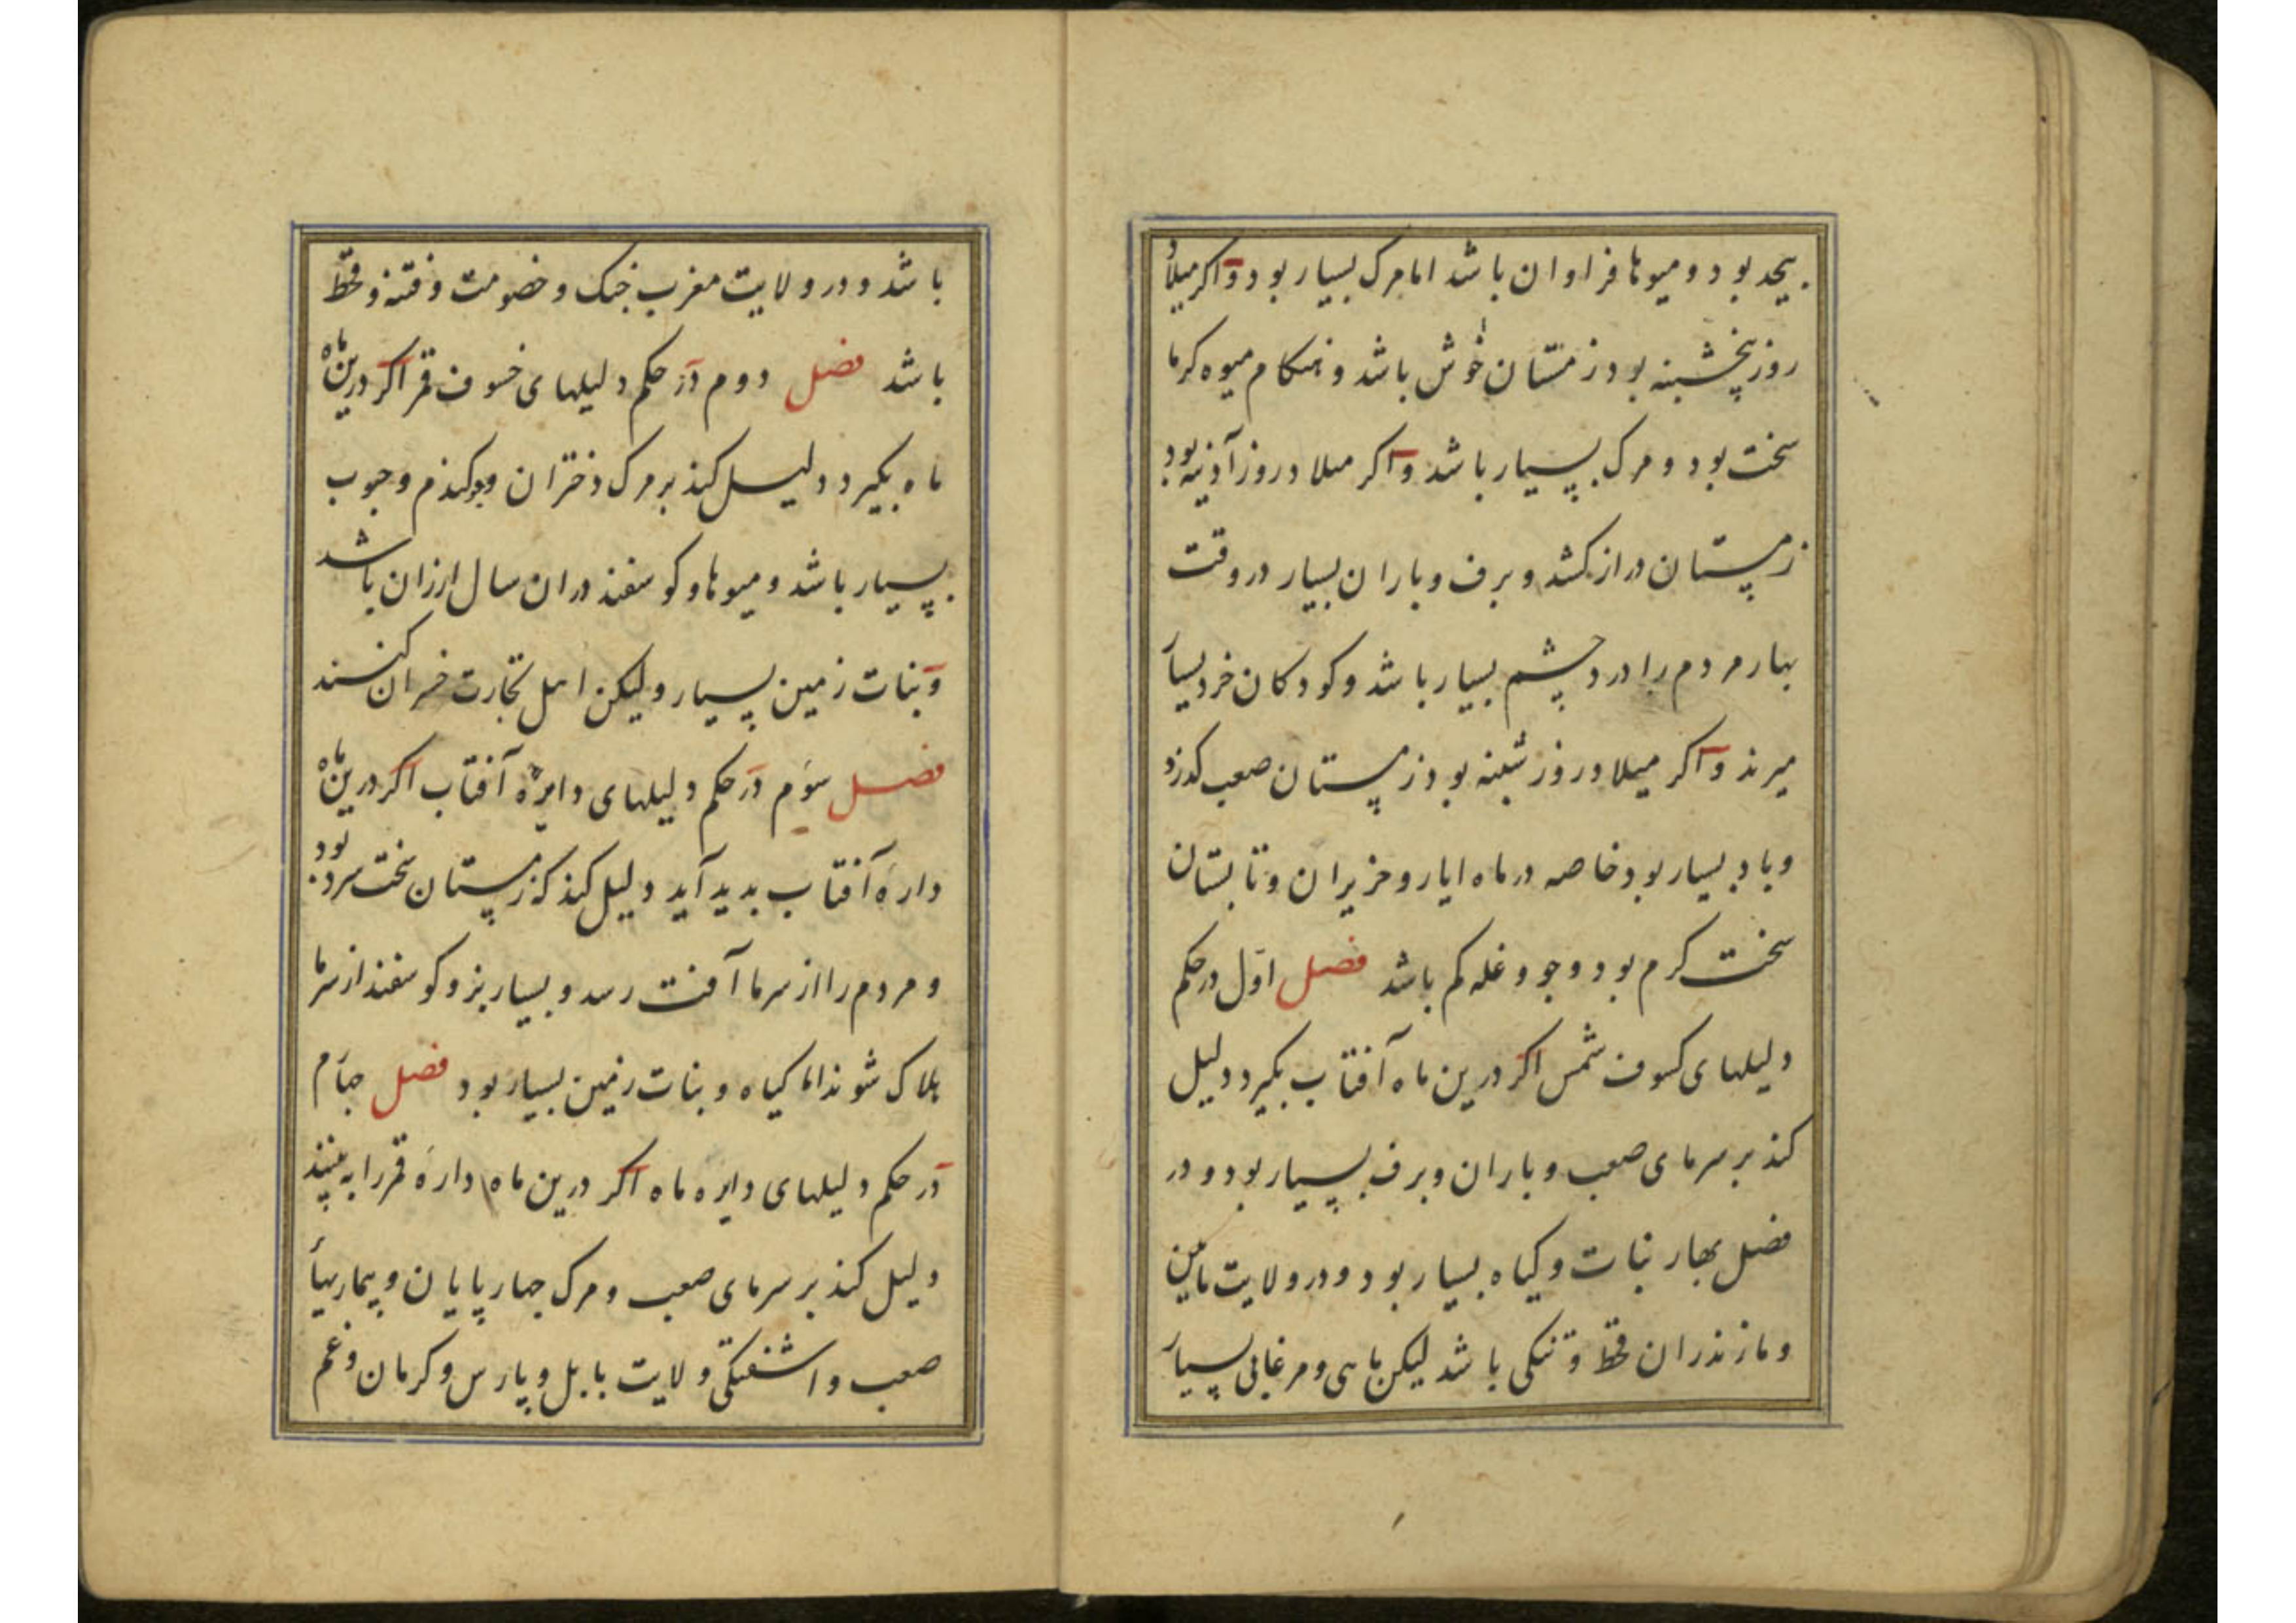 بیحد بود و میوها فراوان باشد اما مرک بسیار بود و اکر میلاد
روز پنجشنبه بود زمستان خوش باشد و هنکام میوه کرما
سخت بود و مرک بسیار باشد و اکر میلاد روز آذینه بود
زمستان دراز کشد و برف و باران بسیار در وقت
بهار مردم را درد چشم بسیار باشد و کودکان خرد بسیار
میرند و اکر میلاد روز شنبه بود زمستان صعب کذرد
و باد بسیار بود خاصه در ماه ایار و حزیران و تابستان
سخت کرم بود و جو و غله کم باشد فصل اول در حکم
دلیلهای کسوف شمس اکر درین ماه آفتاب بکیرد دلیل
کند بر سرمای صعب و باران و برف بسیار بود و در
فصل بهار نبات و کیاه بسیار بود و در ولایت
و مازندران قحط و تنکی باشد لیکن ماهی و مرغابی بسیار
باشد و در ولایت مغرب جنک و خصومت و فتنه و قحط
باشد فصل دوم در حکم دلیلهای خسوف قمر اکر درین ماه
ماه بکیرد دلیل کند بر مرک دختران و کندم و حبوب
بسیار باشد و میوها و کوسفند در ان سال ارزان باشد
و نبات زمین بسیار و لیکن اهل تجارت خسران کنند
فصل سوم در حکم دلیلهای دایره آفتاب اکر درین ماه
داره آفتاب بدید آید دلیل کند که زمستان سخت سرد بود
و مردم را از سرما آفت رسد و بسیار بز و کوسفند از سرما
هلاک شوند اما کیاه و نبات زمین بسیار بود فصل جهارم
در حکم دلیلهای دایره ماه اکر درین ماه داره قمر را به بینند
دلیل کند بر سرمای صعب و مرک جهارپایان و بیماریها
صعب و اشفتکی ولایت بابل و پارس و کرمان و غم